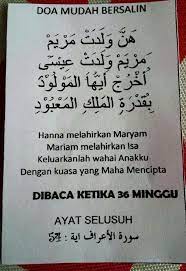 DOA MUDAH BERSALIN
هَنَّ وَلَدَتْ مَرْيَمَ
مَرْيَمَ وَلَدَتْ عِيسَى
أُخْرُجْ أَيُّهَا الْمَوْلُوْدُ
بِقُدْرَةِ الْمَلِكِ الْمَعْبُوْدِ
Hanna melahirkan Maryam
Mariam melahirkan Isa
Keluarkanlah wahai Anakku
Dengan kuasa yang Maha Mencipta
DIBACA KETIKA 36 MINGGU
AYAT SELUSUH
سورة الأعراف اية : 54